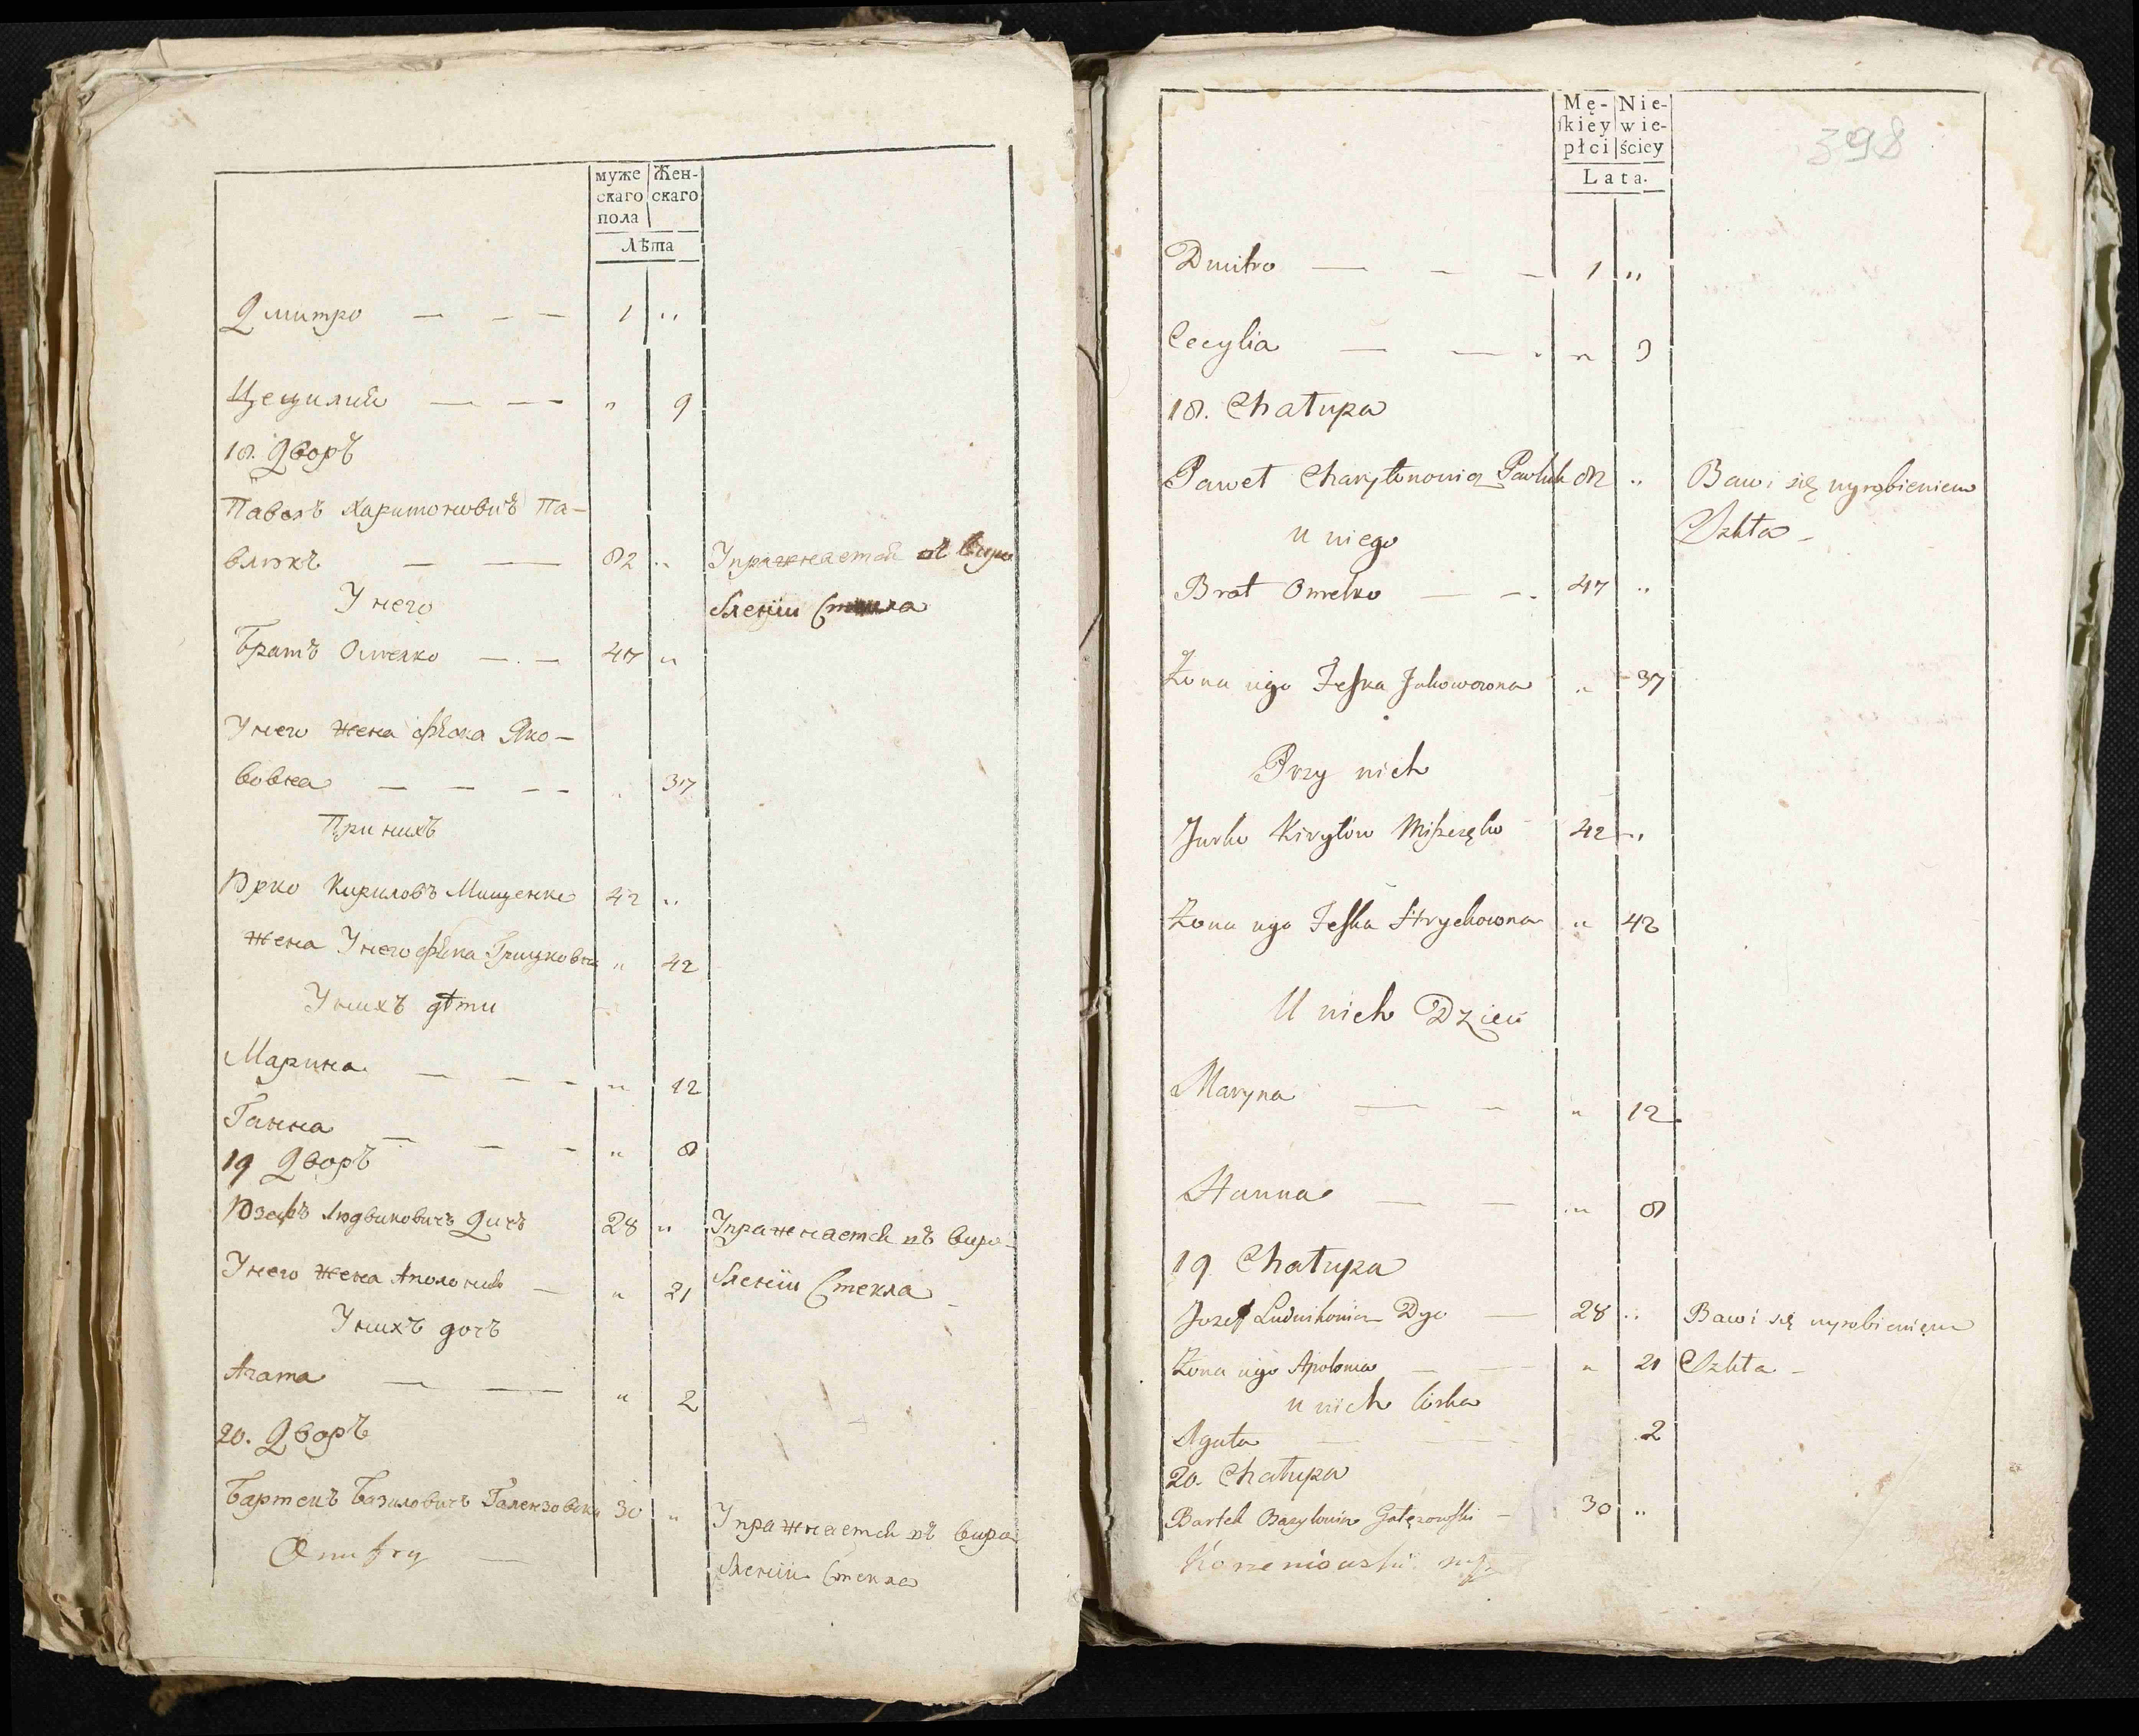 муже
скаго
пола
Жен-
скаго
Лѣта
Дмитро — — — 1 "
Цецилий — — — " 9
18. Дворъ
Павелъ Харитоновичъ Па-
влюкъ — — 82 " Упражнается въ виро
У него бленіи Стекла
Братъ Омелко — . — 47 "
У него жена Фѣска Яко-
вовна — — — — " 37
При нихъ
Юрко Кириловъ Мищенко 42 "
жена У него Фѣска Грицковна " 42
У нихъ дѣти
Марина — — — " 12
Ганна — — — " 8
19 Дворъ
Юзефъ Людвиковичъ Дичъ 28 " Упражнается въ виро-
У него жена Аполонія — " 21 бленіи Стекла —
У нихъ дочъ
Агата — — " 2
20. Дворъ
Бартекъ Базиловичъ Галензовски 30 " Упражнается въ виро
Onufry — бленіи Стекла
Mę-
skiey
płci
Nie-
wie-
ściey
Lata.
398
Dmitro — — — 1 "
Cecylia — — " 9
18. Chałupa
Paweł Charytonowicz Pawluk 82 " Bawi się wyrobieniem
u niego Szkła –
Brat Omelko — — 47 "
Żona iego Feska Jakowowna " 37
Przy nich
Jurko Kiryłów Miszczęko 42 "
Żona iego Feska Hrychowna " 42
U nich Dzieci
Maryna — — " 12
Hanna — — " 8
19. Chałupa
Jozef Ludwikowicz Dyc — 28 " Bawi się wyrobieniem
Żona iego Apolonia — — " 21 Szkła –
u nich córka
Agata 2
20. Chałupa
Bartek Bazylowicz Gałęzowski – 30 "
Korzeniowski mp.